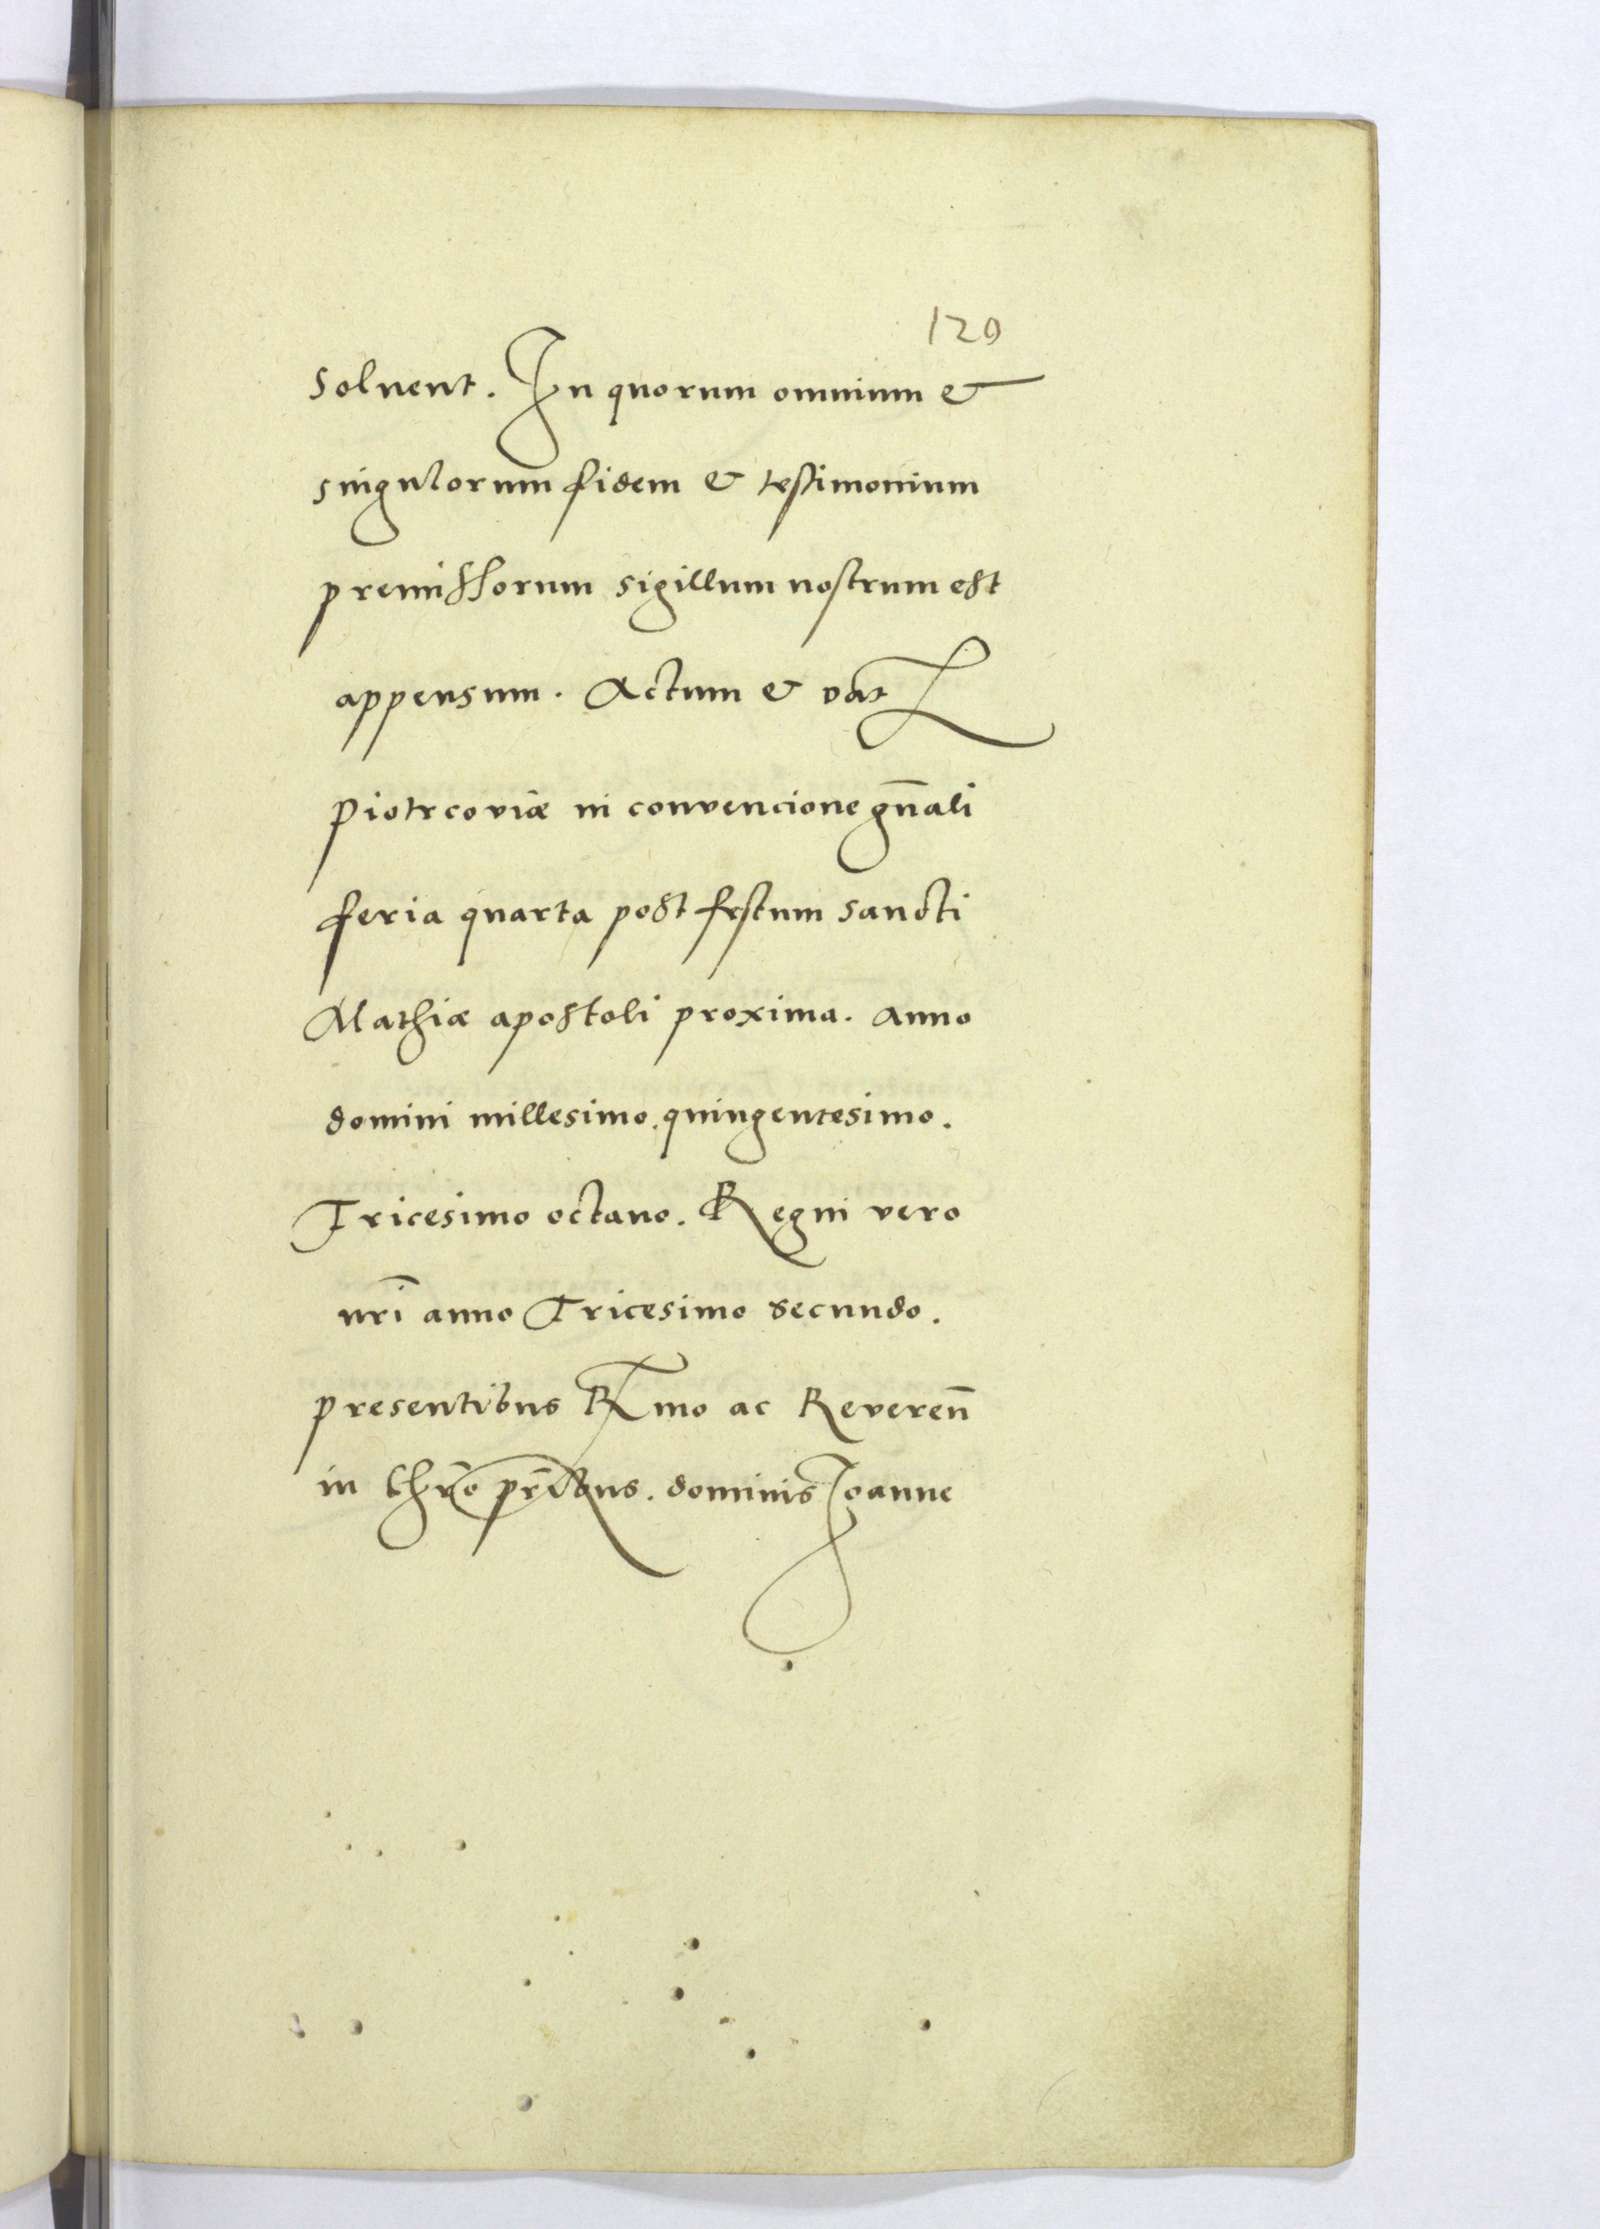 120
solvent. In quorum omnium &
singulorum fidem & testimonium
premissorum sigillum nostrum est
appensum. Actum & dat
Piotrcoviæ in convencione gn̄ali
feria quarta post festum sancti
Mathiæ apostoli proxima. Anno
domini millesimo quingentesimo.
Tricesimo octavo. Regni vero
nri̅ anno Tricesimo secundo.
presentibus Rmo ac Reveren̄
in Chr̄o pr̄ibus. dominis Joanne